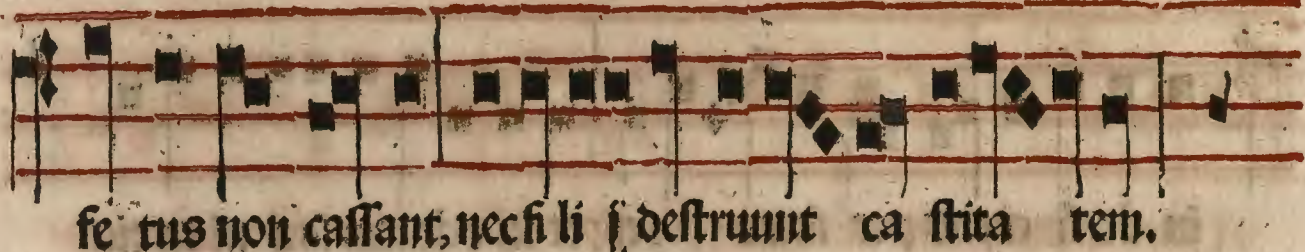 fe tus non caſſant, nec fi li j deſtruunt ca ſtita tem.